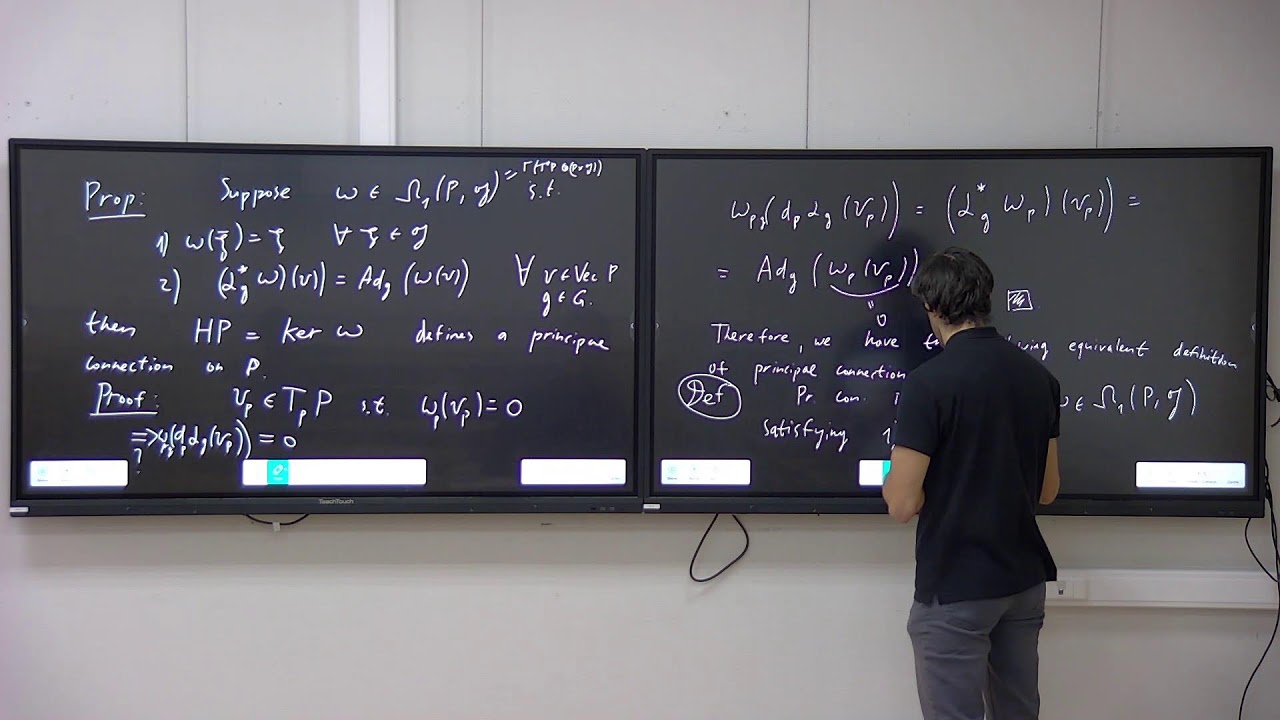 Prop: Suppose ω ∈ Ω₁(P, 𝔤) = Γ(T*P⊗(P×𝔤)) s.t.
1) ω(ξ̄) = ξ ∀ ξ ∈ 𝔤
2) (α*_g ω)(v) = Ad_g (ω(v)) ∀ v ∈ Vec P
g ∈ G.
then HP = ker ω defines a principal
connection on P.
Proof: v_p ∈ T_p P s.t. ω_p(v_p) = 0
⇒ ω_pg(d_p α_g(v_p)) = 0
?
TeachTouch
ω_pg(d_p α_g (v_p)) = (α*_g ω_p)(v_p)) =
= Ad_g (ω_p(v_p))
"
0
Therefore, we have equivalent definition
of principal connection
Def Pr. con. ω ∈ Ω₁(P, 𝔤)
satisfying 1)